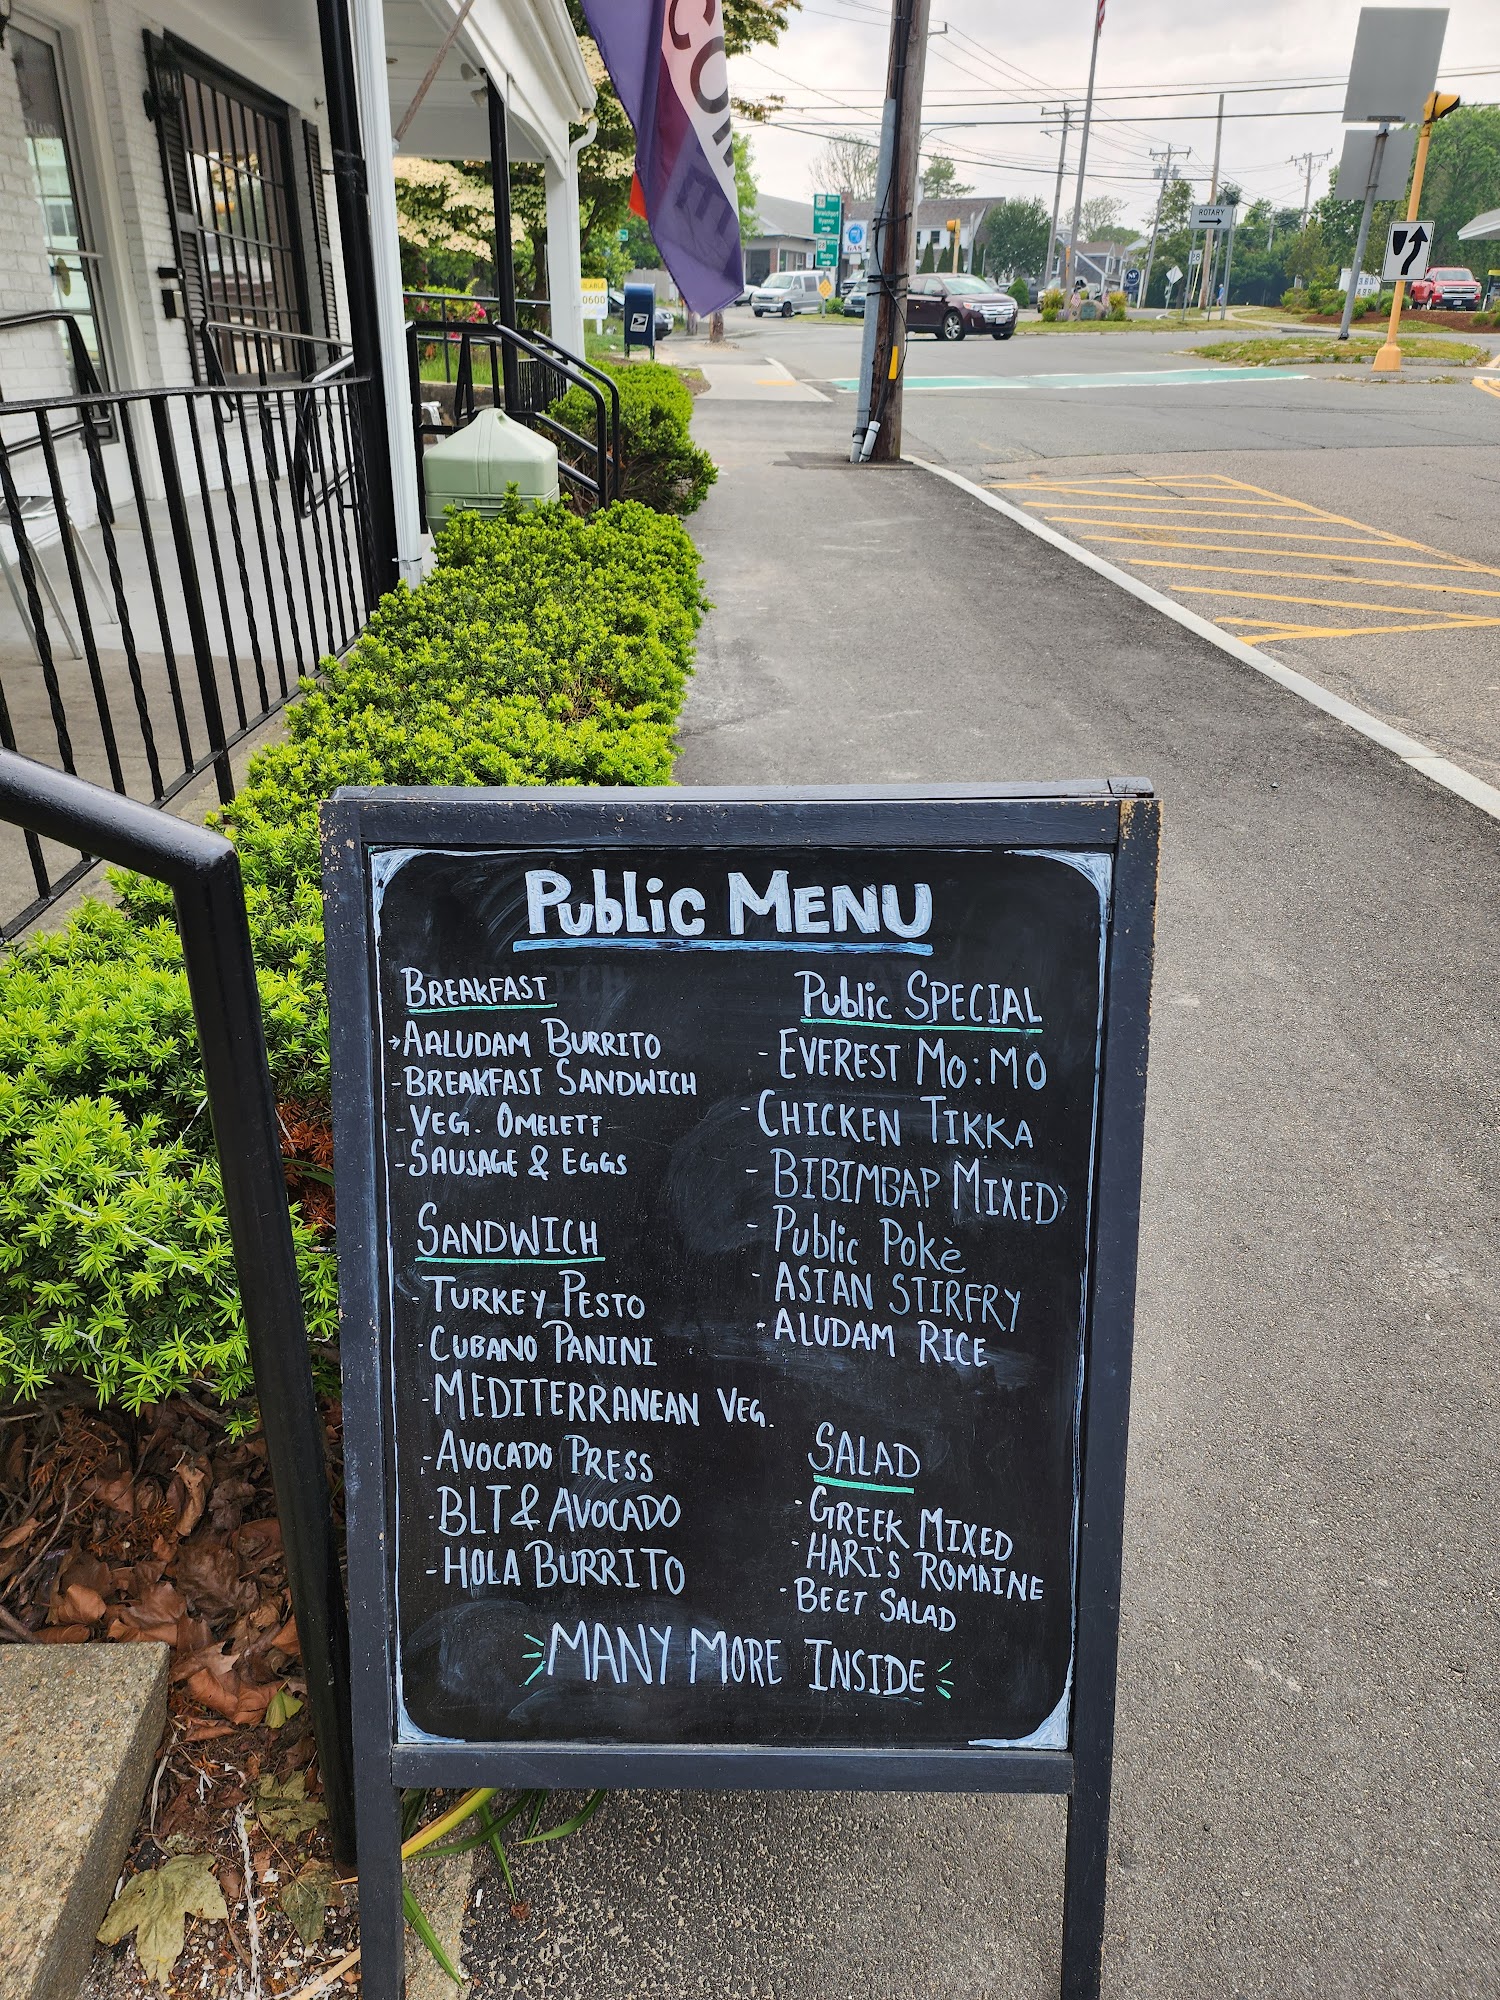 COME
ROTARY
28
GAS
0600
Public MENU
BREAKFAST
→AALUDAM BURRITO
-BREAKFAST SANDWICH
-VEG. OMELETT
-SAUSAGE & EGGS
SANDWICH
-TURKEY PESTO
-CUBANO PANINI
-MEDITERRANEAN VEG.
-AVOCADO PRESS
-BLT & AVOCADO
-HOLA BURRITO
Public SPECIAL
-EVEREST MO:MO
-CHICKEN TIKKA
-BIBIMBAP MIXED
-Public POKè
-ASIAN STIRFRY
-ALUDAM RICE
SALAD
-GREEK MIXED
-HARI'S ROMAINE
-BEET SALAD
MANY MORE INSIDE